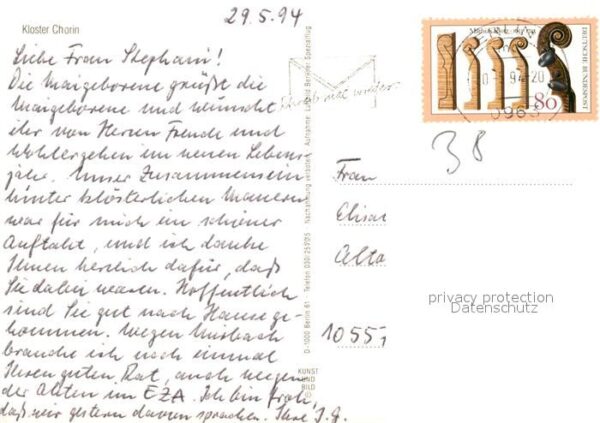 Kloster Chorin
29.5.94
Liebe Frau Stephani!
Die Maigeborene grüßt die
Maigeborene und wünscht
ihr von Herzen Freude und
Wohlergehen im neuen Lebens-
jahr. Unser Zusammensein
hinter klösterlichen Mauern
war für mich ein schöner
Auftakt, und ich danke
Ihnen herzlich dafür, daß
Sie dabei waren. Hoffentlich
sind Sie gut nach Hause ge-
kommen. Wegen
brauche ich noch einmal
Ihren guten Rat, auch wegen
der Akten im EZA. Ich bin froh,
daß wir gestern davon sprachen. Ihre I. G.
D-1000 Berlin 61 · Telefon 030/
KUNST
UND
BILD
Schreib mal wieder
94-20
DEUTSCHE BUNDESPOST
80
38
Frau
Elisa
Alta
1055
privacy protection
Datenschutz